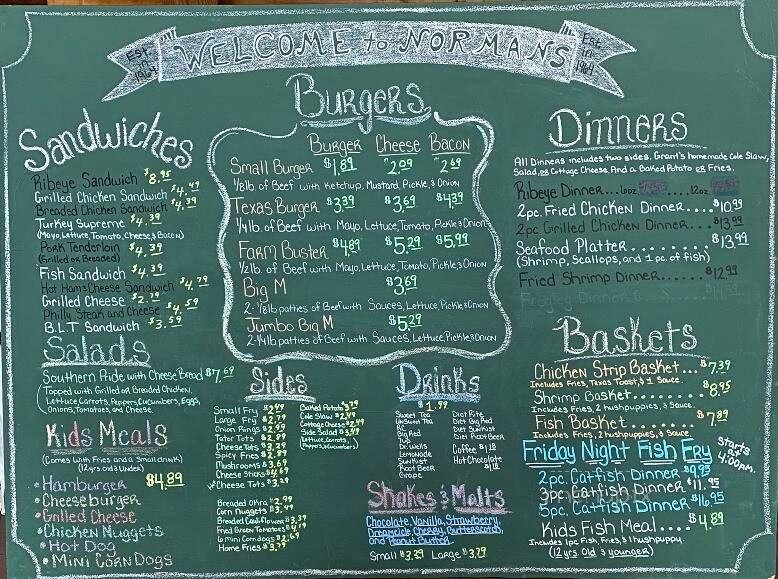 Est. in 1964
WELCOME to NORMANS
Est. in 1964
Sandwiches
Ribeye Sandwich $8.95
Grilled Chicken Sandwich $4.49
Breaded Chicken Sandwich $4.39
Turkey Supreme $4.39
(Mayo, Lettuce, Tomato, Cheese, & Bacon)
Pork Tenderloin $4.39
(Grilled or Breaded)
Fish Sandwich $4.39
Hot Ham & Cheese Sandwich $4.79
Grilled Cheese $2.79
Philly Steak and Cheese $4.59
B.L.T Sandwich $3.59
Salads
Southern Pride with Cheese Bread $7.69
(Topped with Grilled or Breaded Chicken,
Lettuce, Carrots, Peppers, Cucumbers, Eggs,
Onions, Tomatoes, and Cheese
Kids Meals
(Comes with Fries and a Small drink)
(12 yrs old & Under) $4.89
• Hamburger
• Cheeseburger
• Grilled Cheese
• Chicken Nuggets
• Hot Dog
• Mini Corn Dogs
Burgers
Burger Cheese Bacon
Small Burger $1.89 $2.09 $2.69
1/8lb of Beef with Ketchup, Mustard, Pickle, & Onion
Texas Burger $3.39 $3.69 $4.39
1/4lb. of Beef with Mayo, Lettuce, Tomato, Pickle & Onion
Farm Buster $4.89 $5.29 $5.99
1/2lb. of Beef with Mayo, Lettuce, Tomato, Pickle, & Onion
Big M $3.69
2-1/8lb patties of Beef with Sauces, Lettuce, Pickle & Onion
Jumbo Big M $5.29
2-1/4lb patties of Beef with Sauces, Lettuce, Pickle & Onion
Sides
Small Fry $2.49
Large Fry $2.79
Onion Rings $2.99
Tator Tots $2.89
Cheese Tots $3.29
Spicy Fries $2.89
Mushrooms $3.69
Cheese Sticks $4.69
Cheese Tots $3.29
Breaded Okra $2.99
Corn Nuggets $3.49
Breaded Cauliflower $3.39
Fried Green Tomatoes $4.49
6 Mini Corn Dogs $2.69
Home Fries $3.79
Baked Potato $2.79
Cole Slaw $2.49
Cottage Cheese $2.49
Side Salad $3.49
(Lettuce, Carrots,
Peppers, & Cucumbers)
Drinks
$1.99
Sweet Tea
UnSweet Tea
Coke
Big Red
7up
Dr. Wells
Lemonade
Sunkist
Root Beer
Grape
Diet Rite
Diet Big Red
Diet Sunkist
Diet Root Beer
Coffee $1.19
Hot Chocolate
$1.19
Shakes & Malts
Chocolate, Vanilla, Strawberry,
Dreamsicle, Cherry, Butterscotch
and Peanut Butter
Small $3.39 Large $3.79
Dinners
All Dinners includes two sides. Grant's homemade Cole Slaw,
Salad, or Cottage Cheese. And a Baked Potato or Fries.
Ribeye Dinner... 10oz. ..... 12oz.
2pc. Fried Chicken Dinner.... $10.99
2pc. Grilled Chicken Dinner... $13.99
Seafood Platter ......... $13.99
(Shrimp, Scallops, and 1 pc. of fish)
Fried Shrimp Dinner...... $12.99
Frogleg Dinner
Baskets
Chicken Strip Basket... $7.39
Includes Fries, Texas Toast, & 1 Sauce.
Shrimp Basket........ $8.95
Includes Fries, 2 hushpuppies, & Sauce
Fish Basket......... $7.89
Includes Fries, 2 hushpuppies, & Sauce.
Friday Night Fish Fry
Starts at 4:00pm.
2pc. Catfish Dinner $9.95
3pc. Catfish Dinner $11.95
5pc. Catfish Dinner $16.95
Kids Fish Meal.... $4.89
Includes 1pc. Fish, Fries, & 1 hushpuppy.
(12 yrs. Old & younger)